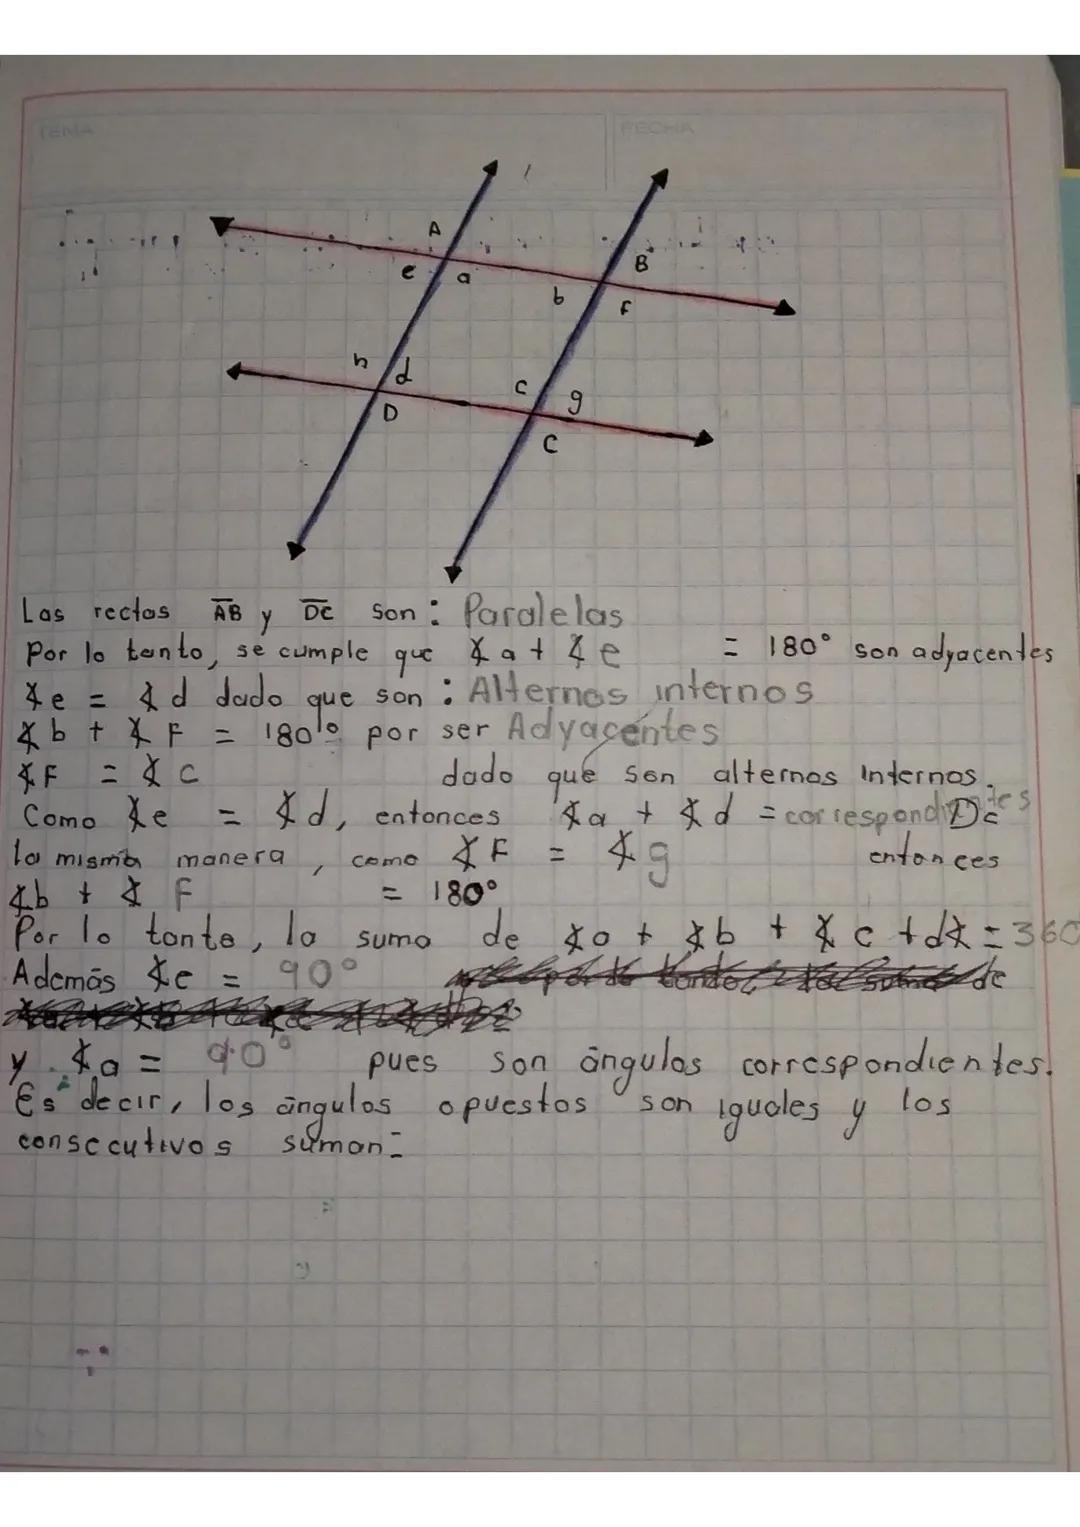 TEMA
FECHA
A
B
e
a
b
f
h
d
c
g
D
C
Las rectas AB y DC son: Paralelas
Por lo tanto, se cumple que ∡a+ ∡e = 180° son adyacentes
∡e = ∡d dado que son: Alternos internos
∡b + ∡F = 180° por ser Adyacentes
∡F = ∡c dado que son alternos internos.
Como ∡e = ∡d, entonces ∡a + ∡d = correspondientes De
la misma manera, como ∡F = ∡g entonces
∡b + ∡ F = 180°
Por lo tanto, la suma de ∡a + ∡b + ∡c +d∡ = 360
Además ∡e = 90° de
y ∡a = 90° pues son ángulos correspondientes.
Es decir, los ángulos opuestos son iguales y los
consecutivos suman=